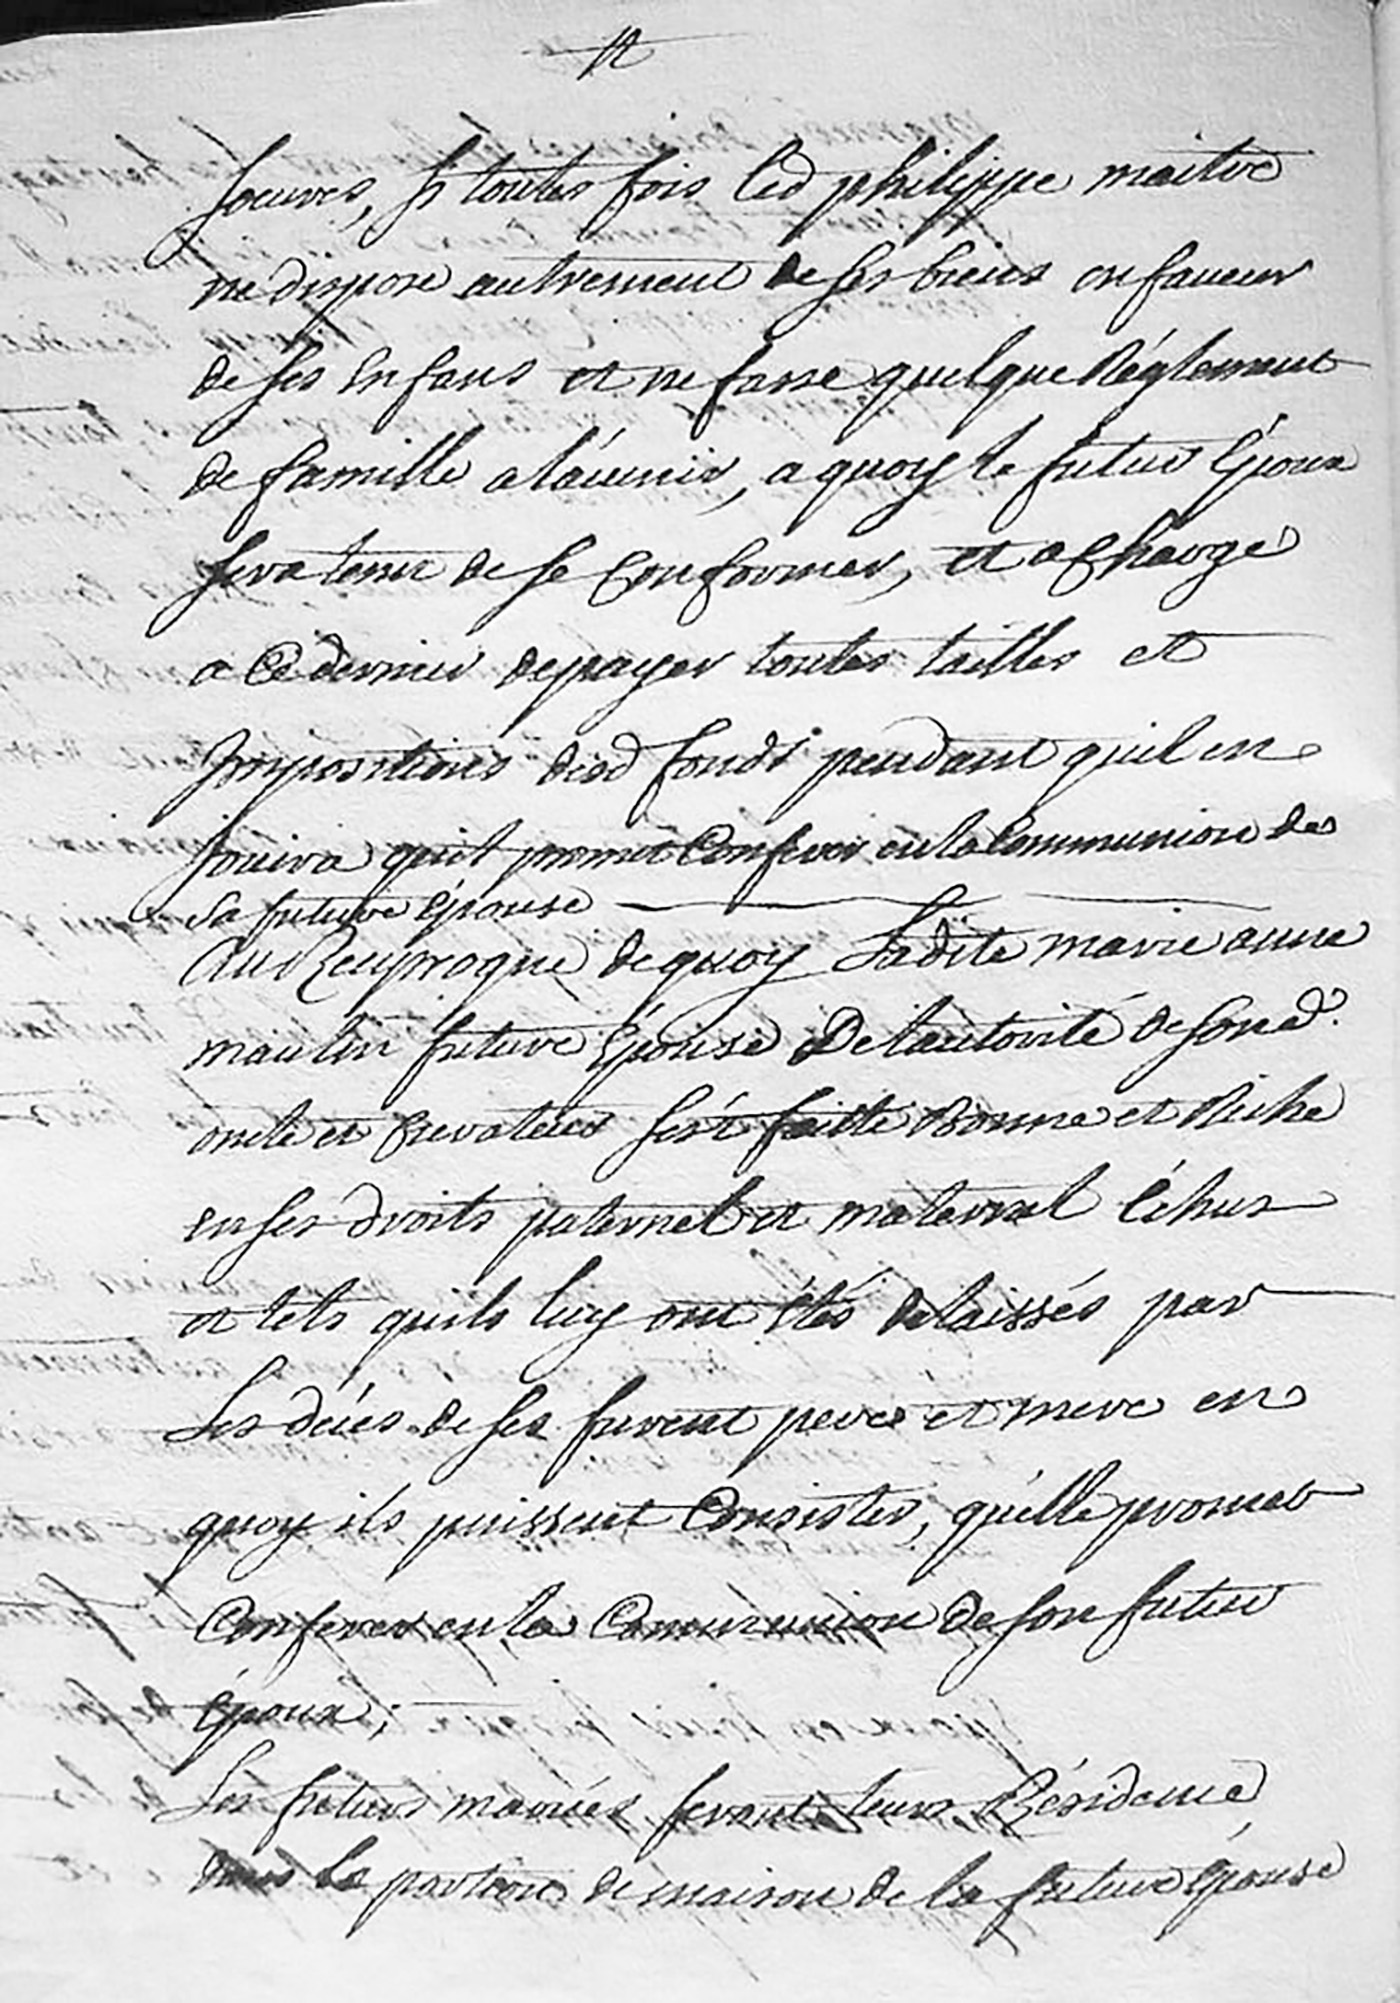 Soeures, Si toutes fois led philippe maitre
ne dispose autrement de ses biens en faueur
de ses enfans et ne fasse quelque Réglement
de famille alávenir, a quoy le futur Époux
sera tenu de se Conformer, et a Charge
a Ce dernier de payer toutes tailles et
Impositions desd fonds pendant quil en
jouira quil promet Conferer en la Communion de
Sa future Épouse
Au Reciproque de quoy Ladite marie anne
maulin future Épouse De lautorité de sond.
oncle et Curateur sest faitte Bonne et Riche
en ses droits paternel et maternel Échus
et tels quils luy ont étés delaissés par
Les décés de ses furent pere et mere en
quoy ils puissent Consister, quélle promet
Conferer en la Communion de son futur
Époux;
Les futurs mariés feront leur Résidence
dans la portion de maison de la future épouse